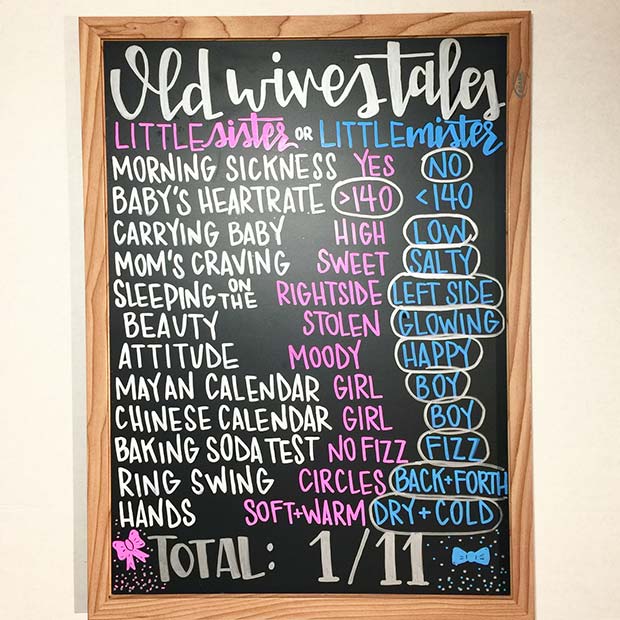 Old wives tales
LITTLE sister OR LITTLE mister
MORNING SICKNESS YES NO
BABY'S HEARTRATE >140 <140
CARRYING BABY HIGH LOW
MOM'S CRAVING SWEET SALTY
SLEEPING ON THE RIGHTSIDE LEFT SIDE
BEAUTY STOLEN GLOWING
ATTITUDE MOODY HAPPY
MAYAN CALENDAR GIRL BOY
CHINESE CALENDAR GIRL BOY
BAKING SODA TEST NO FIZZ FIZZ
RING SWING CIRCLES BACK+FORTH
HANDS SOFT+WARM DRY+COLD
TOTAL: 1/11